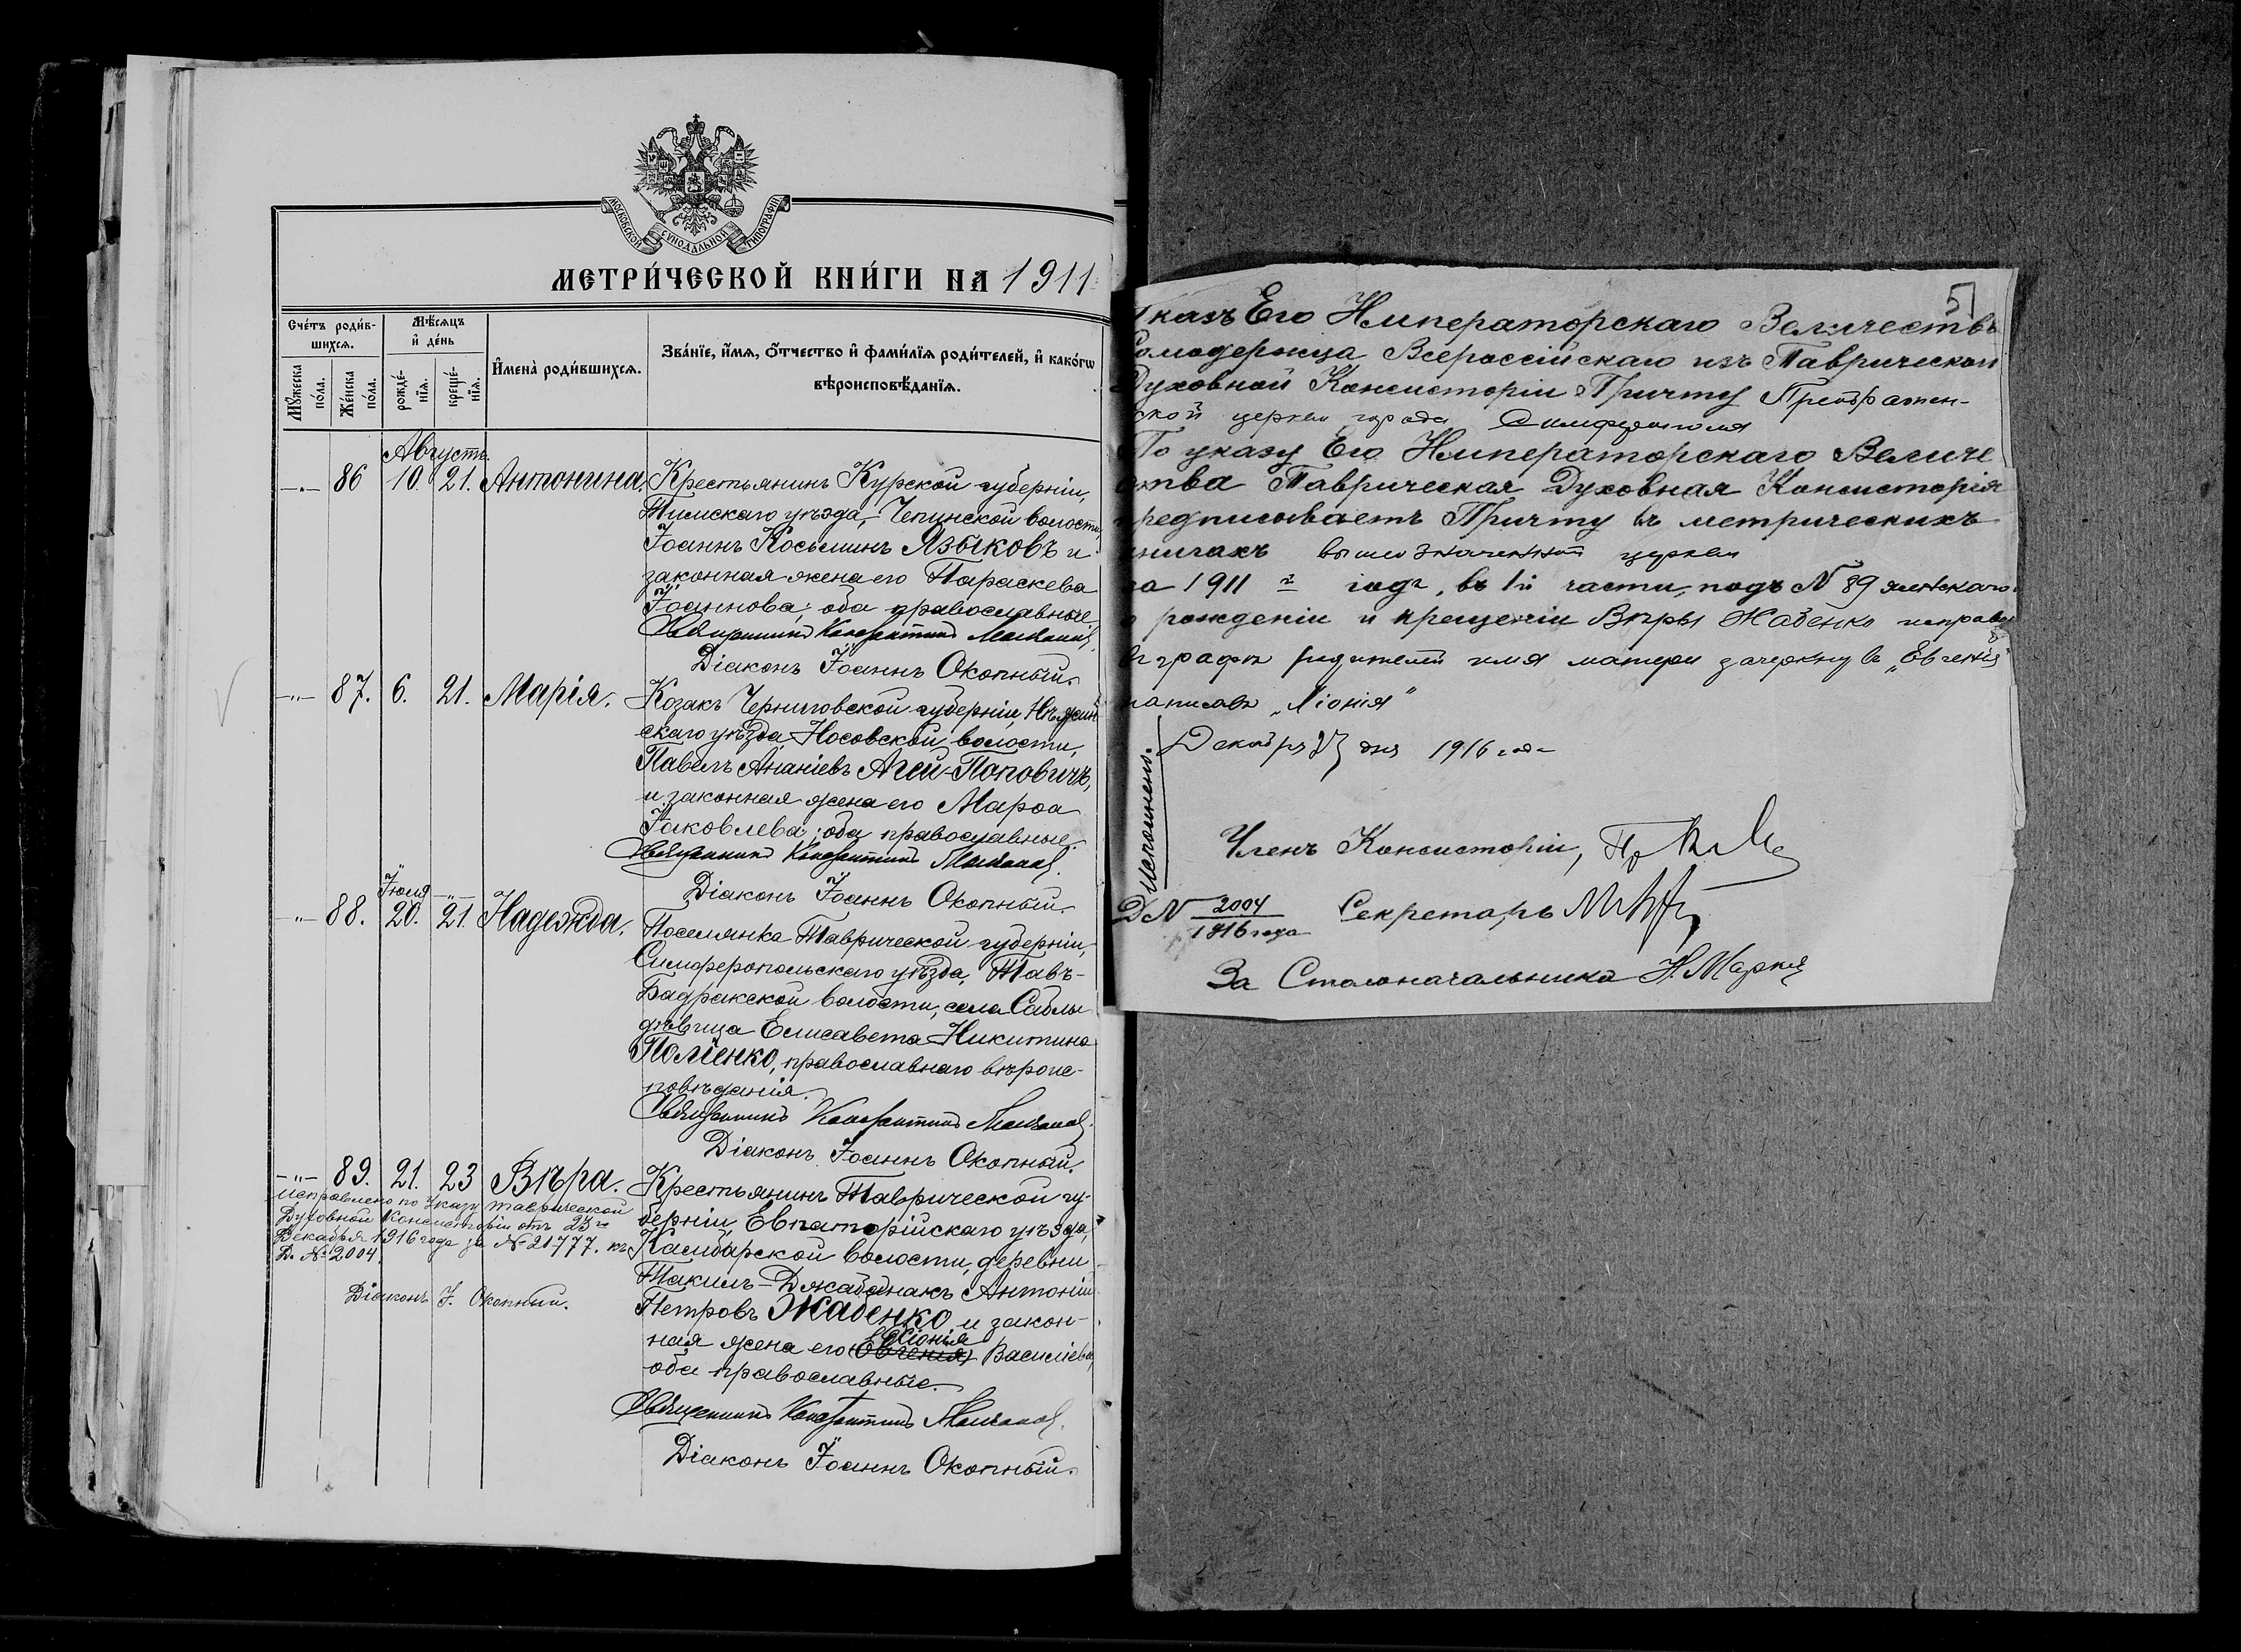 МОСКОВСКОЙ СѴНОДАЛЬНОЙ ТИПОГРАФІИ
МЕТРИ́ЧЕСКОЙ КНИ́ГИ НА 1911
Сче́тъ роди́в-
шихся.
Мꙋжеска по́ла.
Же́нска по́ла.
Мѣ́сяцъ и҆ де́нь
рожде́-
нїя.
креще́-
нїя.
И҆мена̀ роди́вшихся.
Зва́нїе, и҆́мя, ѻ҆́тчество и҆ фами́лїя роди́телей, и҆ како́гѡ
вѣроисповѣ́данїя.
Августъ.
86 10. 21. Антонина. Крестьянинъ Курской губерніи,
Тимскаго уѣзда, Чепинской волости,
Іоаннъ Косьминъ Языковъ и
законная жена его Параскева
Іоаннова; оба православные
Священникъ Константинъ
Діаконъ Іоаннъ Окопный.
-"- 87. 6. 21. Марія. Козакъ Черниговской губерніи, Нѣжин
скаго уѣзда, Носовской волости,
Павелъ Ананіевъ Агей-Поповичъ,
и законная жена его Марѳа
Іаковлева; оба православные.
Священникъ Константинъ
Діаконъ Іоаннъ Окопный.
Іюля -"-
-"- 88. 20. 21. Надежда. Поселянка Таврической губерніи,
Симферопольскаго уѣзда, Тавъ-
Бадракской волости, села Саблы
дѣвица Елисавета Никитина
Поліенко, православнаго вѣроис-
повѣданія.
Священникъ Константинъ
Діаконъ Іоаннъ Окопный.
-"- 89. 21. 23 Вѣра. Крестьянинъ Таврической гу-
берніи, Евпаторійскаго уѣзда,
Камбарской волости, деревни
Такилъ-Джабанакъ Антоній
Петровъ Жабенко и закон-
ная жена его Евгенія Хіонія Василіева,
оба православные.
Священникъ Константинъ
Діаконъ Іоаннъ Окопный.
Исправлено по Указу Таврической
Духовной Консисторіи отъ 23го
Декабря 1916 года за № 21777. къ
Д. № 2004.
Діаконъ І. Окопный.
51
Указъ Его Императорскаго Величества
Самодержца Всероссійскаго изъ Таврической
Духовной Консисторіи Причту Преображен-
ской церкви города Симферополя
По указу Его Императорскаго Величе
ства Таврическая Духовная Консисторія
предписываетъ Причту въ метрическихъ
книгахъ вышеозначенной церкви
за 1911 г годъ, въ 1й части, подъ № 89 женскаго
о рожденіи и крещеніи Вѣры Жабенко исправ
въ графѣ родителей имя матери зачеркнувъ „Евгенія"
написавъ „Хіонія"
Декабря 23 дня 1916 года
Исполнено.
Членъ Консисторіи,
Д № 2004
1916 года
Секретарь
За Столоначальника Н.